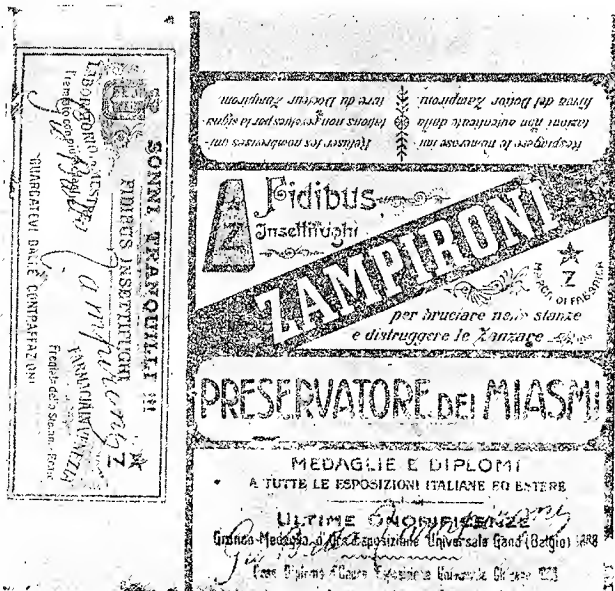 SONNI TRANQUILLI !!!
FIDIBUS INSETTIFUGHI
Zampironi
FARMACIA VENEZIA
LABORATORIO MESTRE
GUARDATEVI DALLE CONTRAFFAZIONI
Respingere le numerose imi-
tazioni non autenticate dalla
firma del Dottor Zampironi.
Refuser les nombreuses imi-
tations non revetues par la signa-
ture du Docteur Zampironi.
Fidibus
Insettifughi
Z
ZAMPIRONI
Z
MARCA DI FABBRICA
per bruciare nelle stanze
e distruggere le Zanzare
PRESERVATORE DEI MIASMI
MEDAGLIE E DIPLOMI
A TUTTE LE ESPOSIZIONI ITALIANE ED ESTERE
ULTIME ONORIFICENZE
Grande Medaglia d'Oro Esposizione Universale Gand (Belgio)
Gran Diploma d'Onore Esposizione Universale